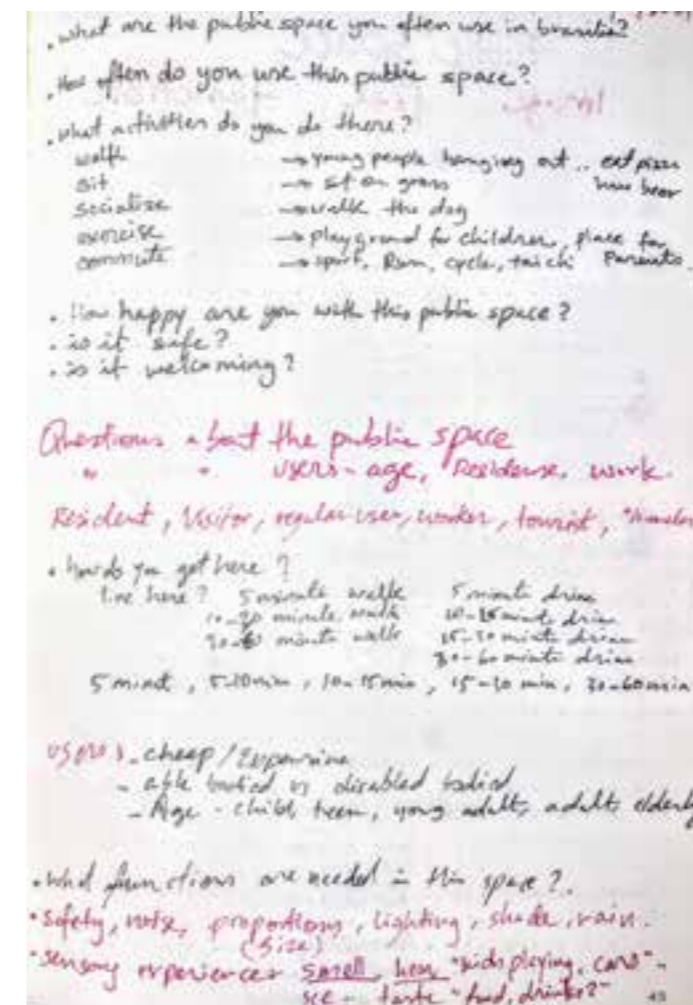 . what are the public space you often use in brasilia?
. How often do you use this public space?
. what activities do you do there?
walk → young people hanging out .. eat pizza
sit → sit on grass have beer
socialize → walk the dog
exercise → playground for children, place for
commute → sport, Run, cycle, taichi Parents.
. How happy are you with this public space?
. is it safe?
. is it welcoming?
Questions about the public space
" " users - age, Residense, work.
Resident, Visitor, regular user, worker, tourist,
. how do you get here?
live here? 5 minute walk 5 minute drive
10-20 minute walk 10-15 minute drive
30-60 minute walk 15-30 minute drive
30-60 minute drive
5 minut, 5-10 min, 10-15 min, 15-30 min, 30-60 min
users . cheap / Expensive
- able bodied vs disabled bodied
- Age - child, teen, young adult, adult, elderly
. what functions are needed in this space?
. Safety, noise, proportions, lighting, shade, rain.
(size)
. Sensory experiences smell, hear "kids playing, cars" -
see - taste "food, drinks?"